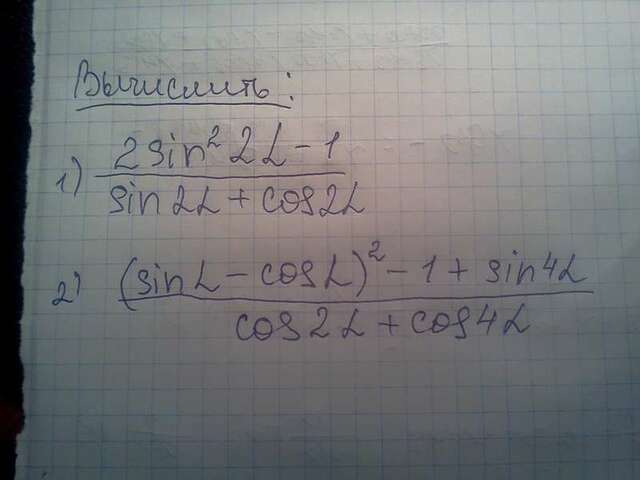 Вычислить:
1) (2 sin² 2α - 1) / (sin 2α + cos 2α)
2) ((sin α - cos α)² - 1 + sin 4α) / (cos 2α + cos 4α)